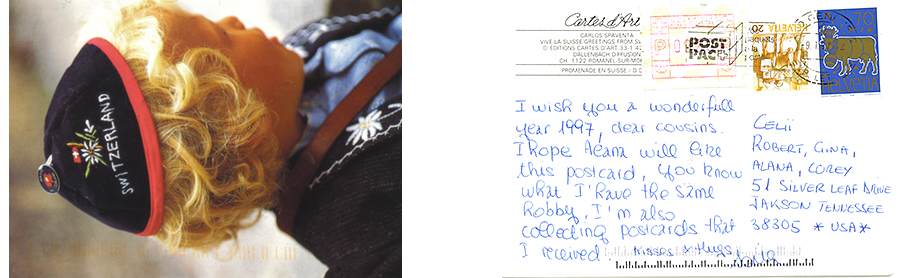 SWITZERLAND
Cartes d'Art
CARLOS SPAVENTA
VIVE LA SUISSE-GREETINGS FROM
D EDITIONS CARTES D'ART 33-1
DALLENBACH DIFFUSION
CH. 1122 ROMANEL-SUR-MO
PROMENADE EN SUISSE / D D
POST
PAC
20
HELVETIA
GEN
70
HELVETIA
I wish you a wonderfull
year 1997, dear cousins.
I hope Alana will like
this postcard, you know
what I have the same
hobby, I'm also
collecting postcards that
I received. Kisses & Hugs
CELII
ROBERT, GINA,
ALANA, COREY
51 SILVER LEAF DRIVE
JAKSON TENNESSEE
38305 * USA *